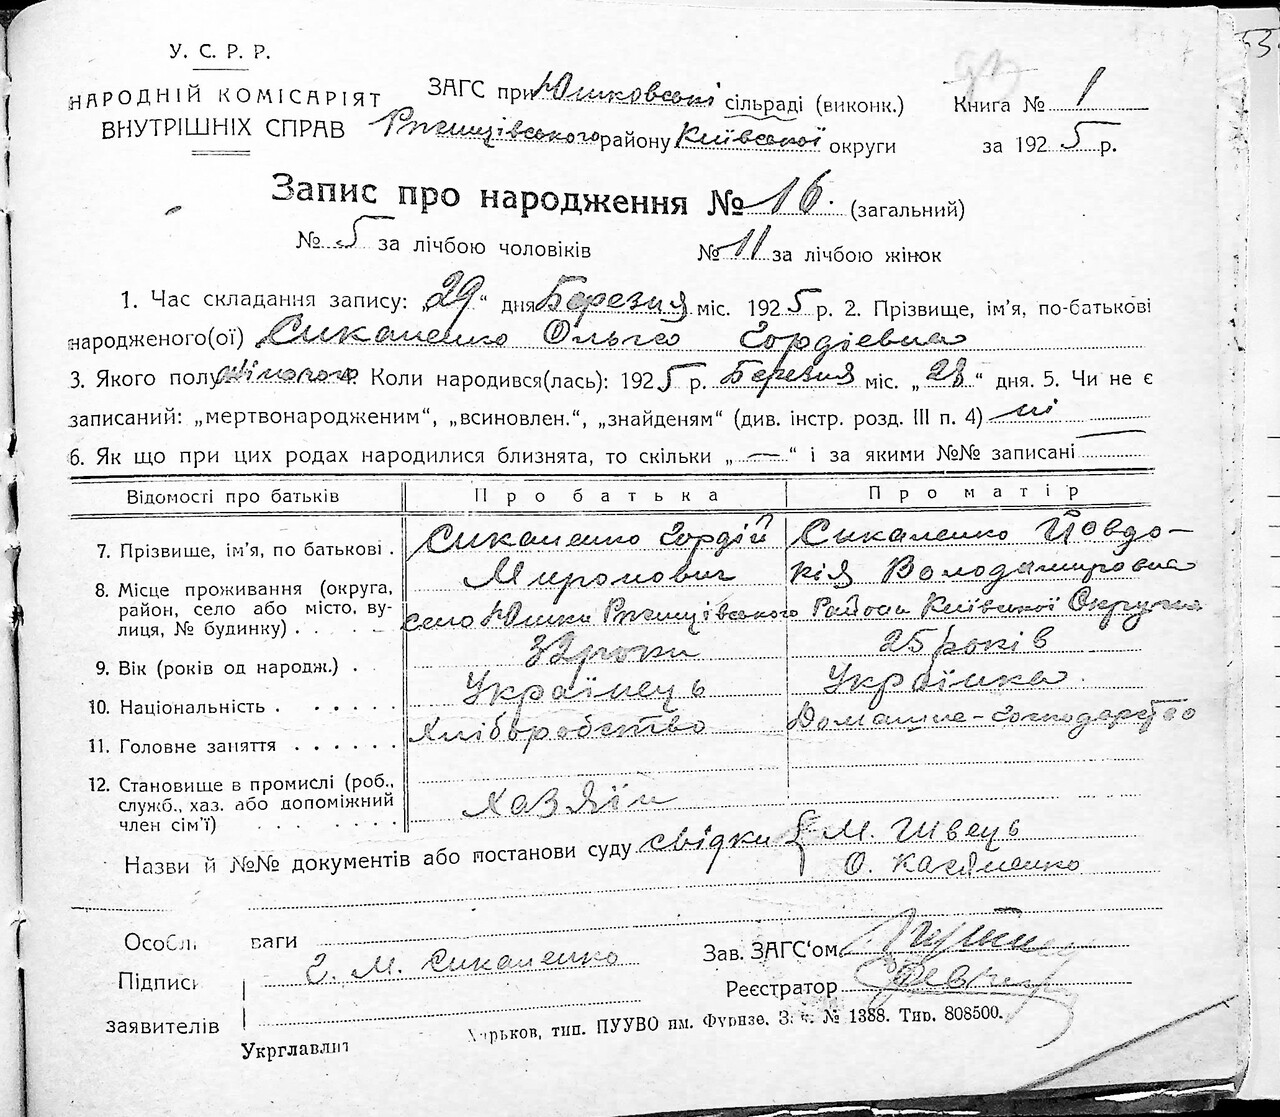 У. С. Р. Р.
НАРОДНІЙ КОМІСАРІЯТ
ВНУТРІШНІХ СПРАВ
ЗАГС при Юшковській сільраді (виконк.)
Ржищівського району Київської округи
Книга № 1
за 1925 р.
53
Запис про народження № 16. (загальний)
№ 5 за лічбою чоловіків № 11 за лічбою жінок
1. Час складання запису: „29“ дня Березня міс. 1925 р. 2. Прізвище, ім'я, по-батькові
народженого(ої) Сикаленко Ольга Гордієвна
3. Якого полу жіночого. Коли народився(лась): 1925 р. Березня міс. „28“ дня. 5. Чи не є
записаний: „мертвонародженим“, „всиновлен.“, „знайденям“ (див. інстр. розд. III п. 4) ні
6. Як що при цих родах народилися близнята, то скільки „—“ і за якими №№ записані —
Відомості про батьків Про батька Про матір
7. Прізвище, ім'я, по батькові . Сикаленко Гордій Сикаленко Йовдо-
Миронович кія Володимировна
8. Місце проживання (округа,
район, село або місто, ву-
лиця, № будинку) . . . . . село Юшки Ржищівського Района Київської Округи
9. Вік (років од народж.) . 32 роки 25 років
10. Національність . . . . . . Українець Українка.
11. Головне заняття . . . . . . Хліборобство Домашнє-Господарство
12. Становище в промислі (роб.,
служб., хаз. або допоміжний
член сім'ї) . . . . . . . . Хазяїн
Назви й №№ документів або постанови суду свідки { М. Швець
О. Касяненко
Особл ваги
Підписи Г. М. Сикаленко
заявителів
Зав. ЗАГС'ом
Реєстратор
Укрглавліт
Харьков, тип. ПУУВО им. Фрунзе. Зак. № 1388. Тир. 808500.